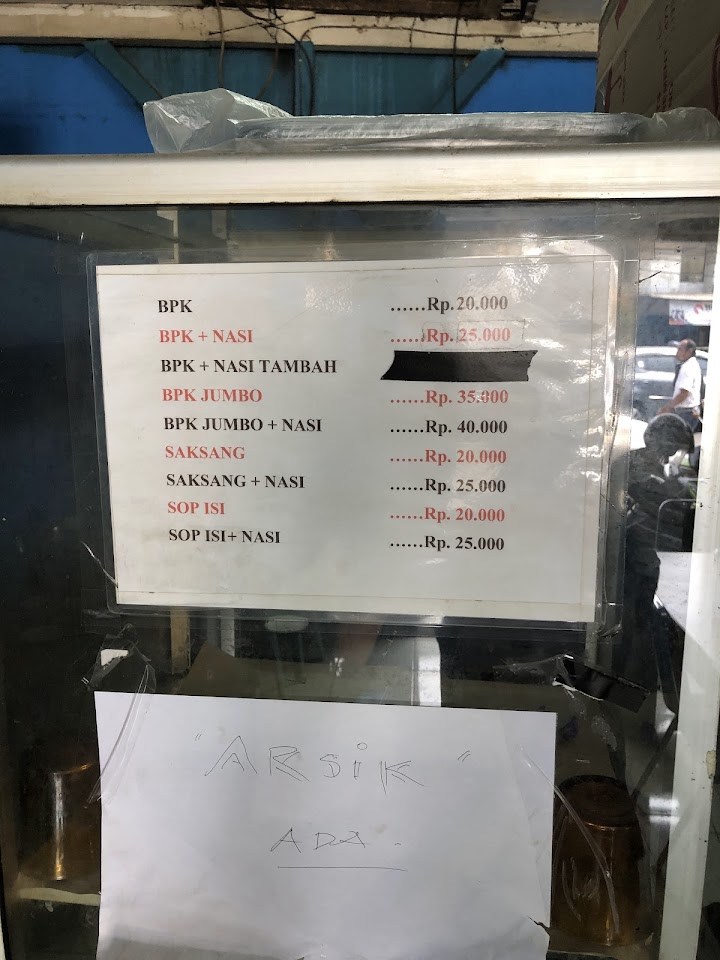 BPK ......Rp.20.000
BPK + NASI ......Rp. 25.000
BPK + NASI TAMBAH
BPK JUMBO ......Rp. 35.000
BPK JUMBO + NASI ......Rp. 40.000
SAKSANG ......Rp. 20.000
SAKSANG + NASI ......Rp. 25.000
SOP ISI ......Rp. 20.000
SOP ISI+ NASI ......Rp. 25.000
"ARSiK"
ADA.